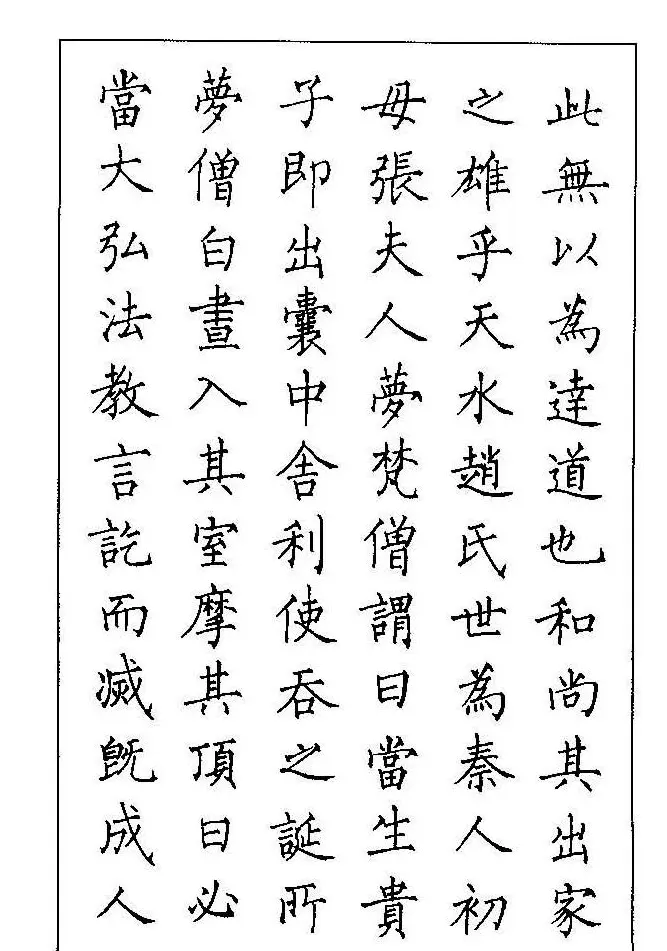 此無以為達道也和尚其出家
之雄乎天水趙氏世為秦人初
母張夫人夢梵僧謂曰當生貴
子即出囊中舍利使吞之誕所
夢僧白晝入其室摩其頂曰必
當大弘法教言訖而滅既成人